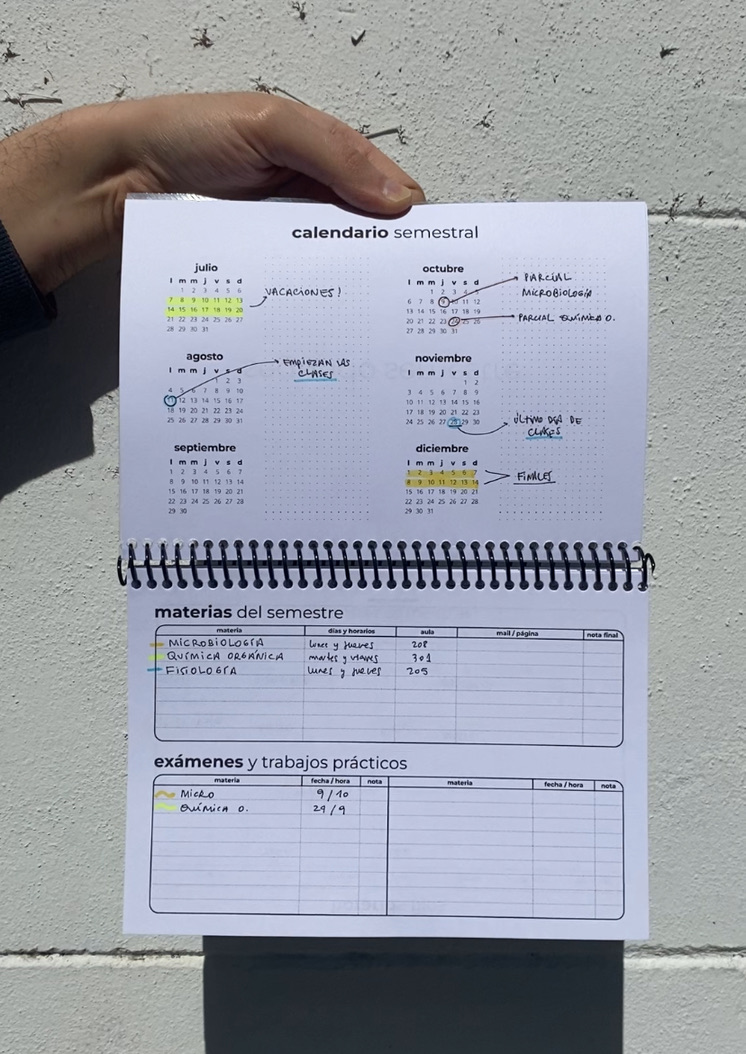 calendario semestral
julio
l m m j v s d
1 2 3 4 5 6
7 8 9 10 11 12 13
14 15 16 17 18 19 20
21 22 23 24 25 26 27
28 29 30 31
VACACIONES!
agosto
l m m j v s d
1 2 3
4 5 6 7 8 9 10
11 12 13 14 15 16 17
18 19 20 21 22 23 24
25 26 27 28 29 30 31
EMPIEZAN LAS
CLASES
septiembre
l m m j v s d
1 2 3 4 5 6 7
8 9 10 11 12 13 14
15 16 17 18 19 20 21
22 23 24 25 26 27 28
29 30
octubre
l m m j v s d
1 2 3 4 5
6 7 8 9 10 11 12
13 14 15 16 17 18 19
20 21 22 23 24 25 26
27 28 29 30 31
PARCIAL
MICROBIOLOGÍA
PARCIAL QUÍMICA O.
noviembre
l m m j v s d
1 2
3 4 5 6 7 8 9
10 11 12 13 14 15 16
17 18 19 20 21 22 23
24 25 26 27 28 29 30
ÚLTIMO DÍA DE
CLASES
diciembre
l m m j v s d
1 2 3 4 5 6 7
8 9 10 11 12 13 14
15 16 17 18 19 20 21
22 23 24 25 26 27 28
29 30 31
FINALES
materias del semestre
materia días y horarios aula mail / página nota final
MICROBIOLOGÍA lunes y jueves 208
QUÍMICA ORGÁNICA martes y viernes 301
FISIOLOGÍA lunes y jueves 205
exámenes y trabajos prácticos
materia fecha / hora nota materia fecha / hora nota
MICRO 9/10
QUÍMICA O. 29/9